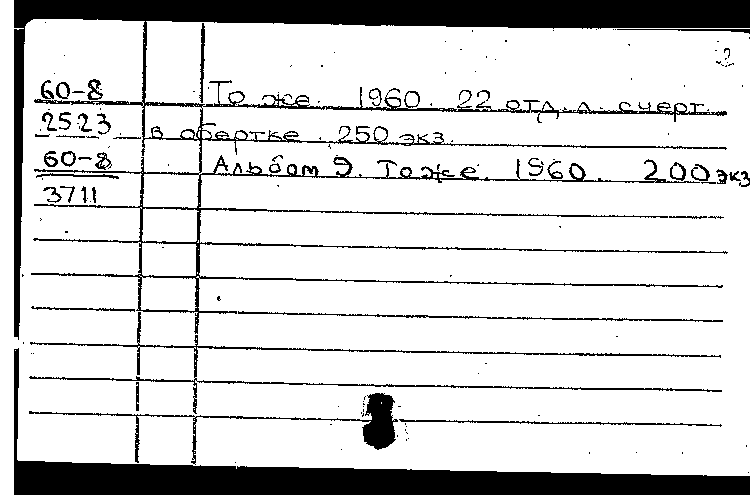 2
60-8 То же. 1960. 22 отд. л. счерт.
2523 в обертке. 250 экз.
60-8 Альбом 9. То же. 1960. 200 экз
3711